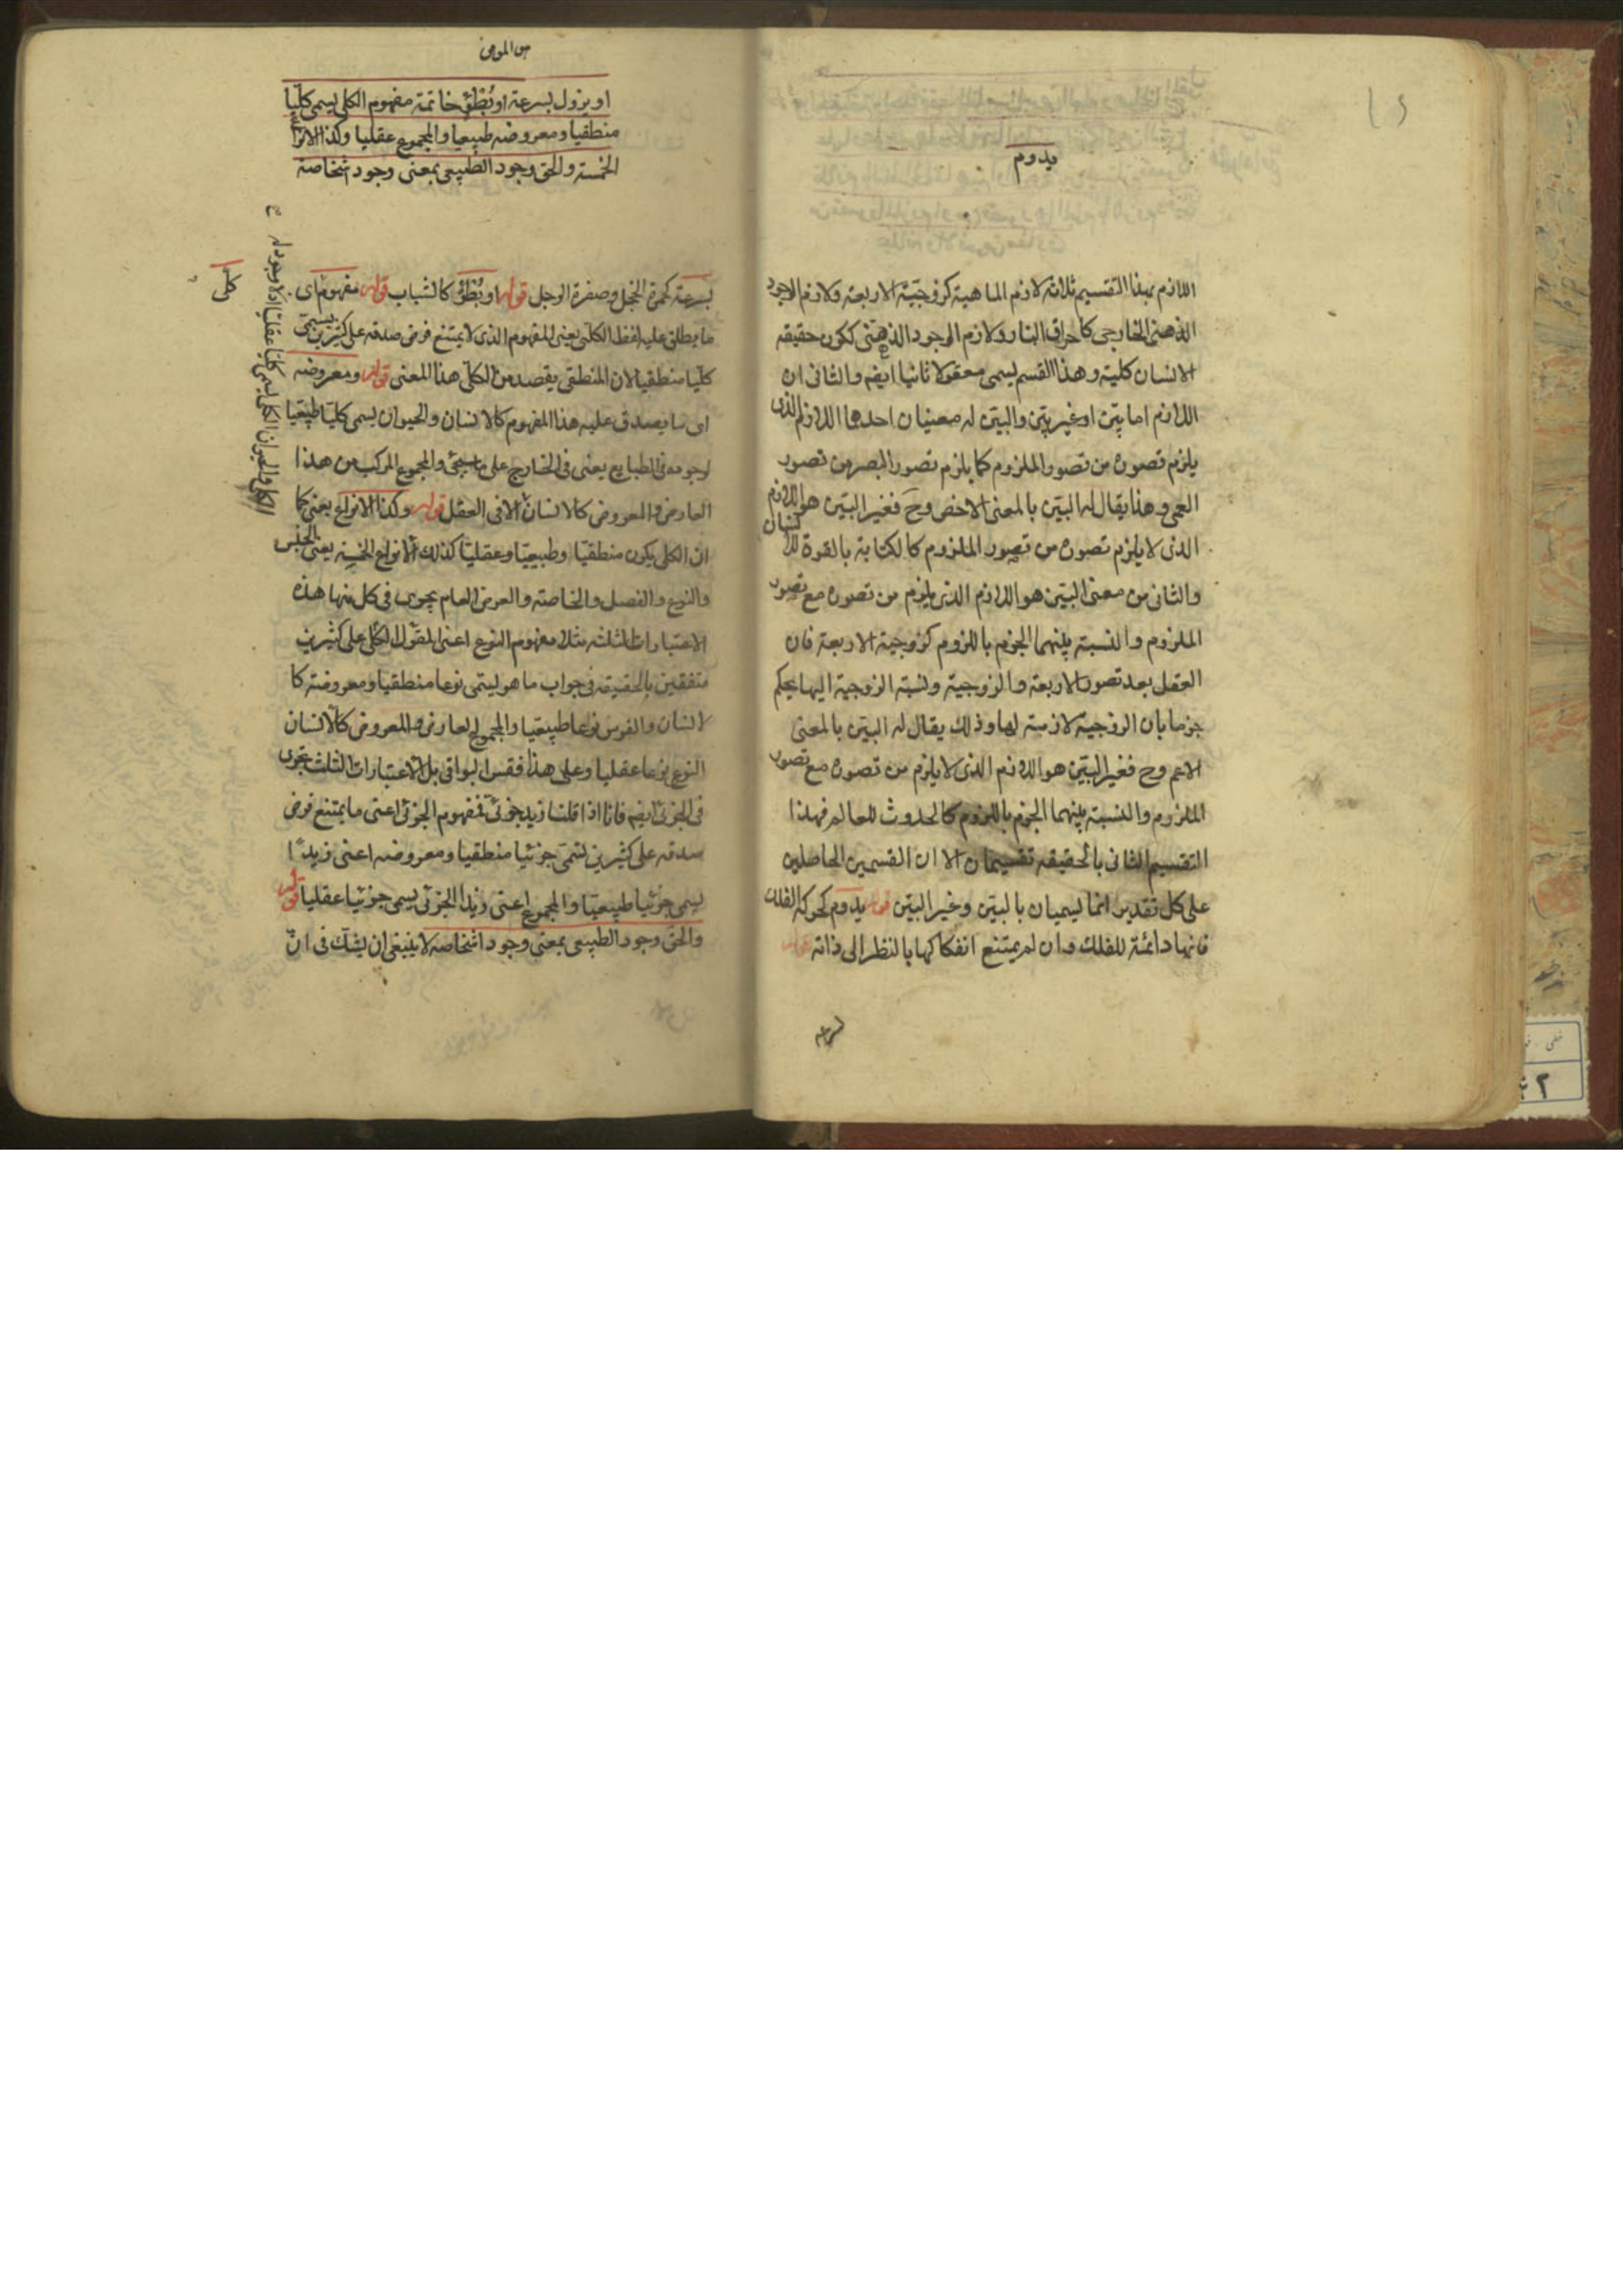 يدوم
اللازم بهذا التقسيم ثلاثة لازم الماهية كزوجيّة الاربعة ولازم الوجود
الذهنى الخارجى كاحراق النار ولازم الوجود الذهنى ككون حقيقه
الانسان كلية وهذا القسم يسمى معقولا ثانيا ايضه والثانى ان
اللازم اما بيّن او غير بيّن والبيّن له معنيان احدهما اللازم الذى
يلزم تصوره من تصور الملزوم كما يلزم تصور البصر من تصور
العمى وهذا يقال له البيّن بالمعنى الاخص وحَ فغير البيّن هو اللازم
الذى لا يلزم تصوره من تصور الملزوم كالكتابة بالقوة للانسان
والثانى من معنى البيّن هو اللازم الذى يلزم من تصوره مع تصور
الملزوم والنسبته بينهما الجزم باللزوم كزوجية الاربعة فان
العقل بعد تصور الاربعة والزوجية ونسبة الزوجية اليها يحكم
جزما بان الزوجية لازمة لها وذلك يقال له البيّن بالمعنى
الاعم وح فغير البيّن هو اللازم الذى لا يلزم من تصوره مع تصور
الملزوم والنسبته بينهما الجزم باللزوم كالحدوث للعالم فهذا
التقسيم الثانى بالحقيقه تقسيمان الا ان القسمين الحاصلين
على كل تقدير انما يسميان بالبيّن وغير البيّن قوله يدوم كحركة الفلك
فانها دائمة للفلك وان لم يمتنع انفكاكها بالنظر الى ذاته
او يزول بسرعة او بُطْؤٍ خاتمة مفهوم الكلى يسمى كلّيا
منطقيا ومعروضه طبيعيا والمجموع عقليا وكذا الانواع
الخمسة والحق وجود الطبيعى بمعنى وجود اشخاصة
بسرعة كحمرة الخجل وصفرة الوجل قوله او بُطْؤٍ كالشباب قوله مفهوم اى
ما يطلق عليه لفظ الكلّى يعنى المفهوم الذى لا يمتنع فرض صدقه على كثيرين يسمّى
كليّا منطقيا لان المنطقى يقصد من الكلّى هذا المعنى قوله ومعروضه
اى ما يصدق عليه هذا المفهوم كالانسان والحيوان يسمى كليّا طبيعيا
لوجوده فى الطبايع يعنى فى الخارج على ما سيجئ والمجموع المركب من هذا
العارض والمعروض كالانسان الكلى والحيوان الكلى يسمى كليّا عقليّا اذ لا وجود له
كلى
الا فى العقل قوله وكذا الانواع يعنى كما
ان الكلى يكون منطقيّا وطبيعيّا وعقليّا كذلك الانواع الخمسة يعنى الجنس
والنوع والفصل والخاصته والعرض العام يجرى فى كل منها هذه
الاعتبارات الثلثه مثلا مفهوم النوع اعنى المقول الكلى على كثيرين
متفقين بالحقيقه فى جواب ما هو يسمى نوعا منطقيا ومعروضه كا
لانسان والفرس نوعا طبيعيا والمجموع العارض والمعروض كالانسان
النوع نوعا عقليا وعلى هذا فقس البواقى بل الاعتبارات الثلث تجرى
فى الجزئى ايضه فانا اذا قلنا زيد جزئى فمفهوم الجزئى اعنى ما يمتنع فرض
صدقه على كثيرين يسمى جزئيا منطقيا ومعروضه اعنى زيدًا
يسمى جزئيا طبيعيّا والمجموع اعنى زيدا الجزئى يسمى جزئيا عقليا قوله
والحق وجود الطبيعى بمعنى وجود اشخاصه لا ينبغى ان يشك فى انّ